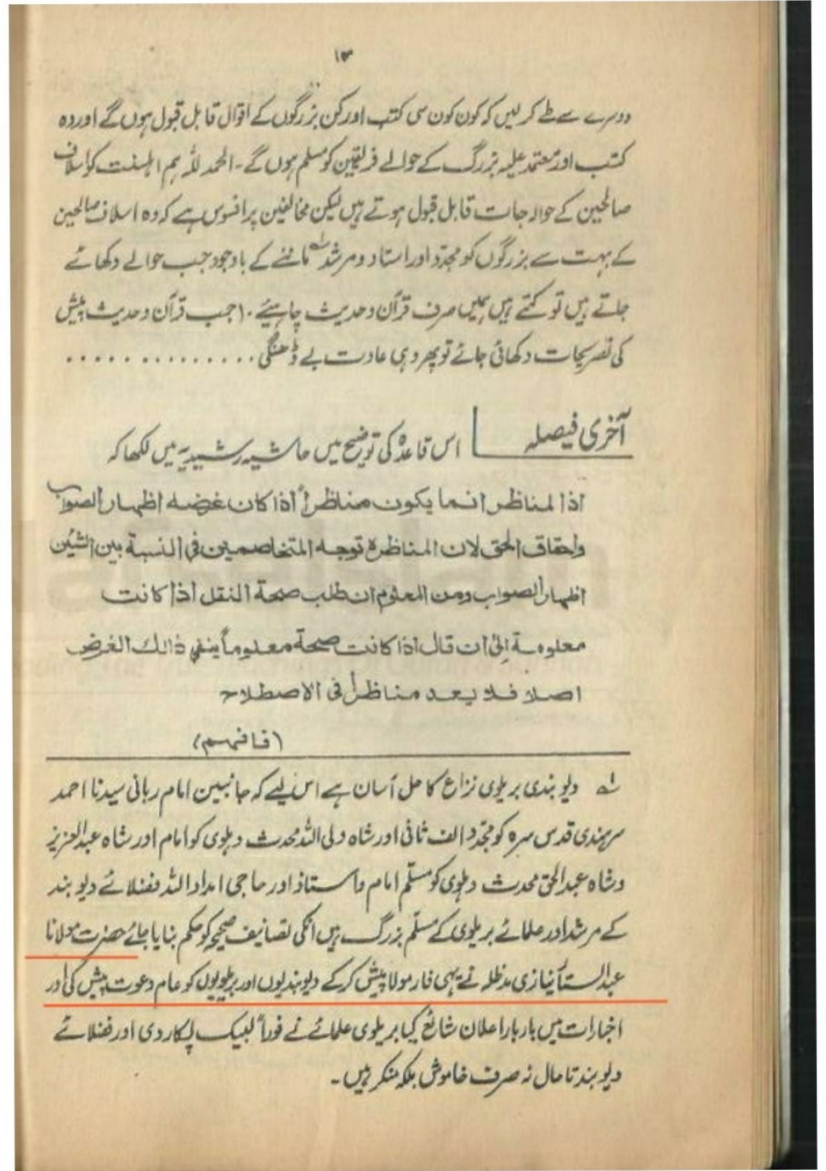 ۱۳
دوسرے سے طے کرلیں کہ کون کون سی کتب اور کن بزرگوں کے اقوال قابل قبول ہوں گے اور وہ
کتب اور معتمد علیہ بزرگ کے حوالے فریقین کو مسلم ہوں گے۔ الحمد للہ ہم اہلسنت کو اسلاف
صالحین کے حوالہ جات قابل قبول ہوتے ہیں لیکن مخالفین پر افسوس ہے کہ وہ اسلاف صالحین
کے بہت سے بزرگوں کو مجدد اور استاد و مرشد ماننے کے باوجود جب حوالے دکھائے
جاتے ہیں تو کہتے ہیں ہمیں صرف قرآن و حدیث چاہیئے۔ جب قرآن و حدیث پیش
کی تصریحات دکھائی جائے تو پھر وہی عادت بے ڈھنگی ..............
آخری فیصلہ اس قاعدہ کی توضیح میں حاشیہ رشیدیہ میں لکھا کہ
اذا المناظر انما یکون مناظراً اذا کان غرضہ اظہار الصواب
واحقاق الحق لان المناظرة توجہ المتخاصمین فی النسبة بین الشیئین
اظہار الصواب ومن المعلوم ان طلب صحة النقل اذا کانت
معلومة الیٰ ان قال اذا کانت صحة معلوماً ینفی ذالک الغرض
اصلا فلا یعد مناظراً فی الاصطلاح
(فافہم)
لہ دیوبندی بریلوی نزاع کا حل آسان ہے اس لیے کہ جانبین امام ربانی سیدنا احمد
سرہندی قدس سرہ کو مجدد الف ثانی اور شاہ ولی اللہ محدث دہلوی کو امام اور شاہ عبدالعزیز
و شاہ عبدالحق محدث دہلوی کو مسلّم امام و استاذ اور حاجی امداد اللہ فضلائے دیوبند
کے مرشد اور علمائے بریلوی کے مسلّم بزرگ ہیں انکی تصانیف صحیحہ کو حکم بنایا جائے حضرت مولانا
عبدالستار نیازی مدظلہ نے یہی فارمولا پیش کرکے دیوبندیوں اور بریلویوں کو عام دعوت پیش کی اور
اخبارات میں بار بار اعلان شائع کیا بریلوی علمائے نے فوراً لبیک پکار دی اور فضلائے
دیوبند تا حال نہ صرف خاموش بلکہ منکر ہیں۔